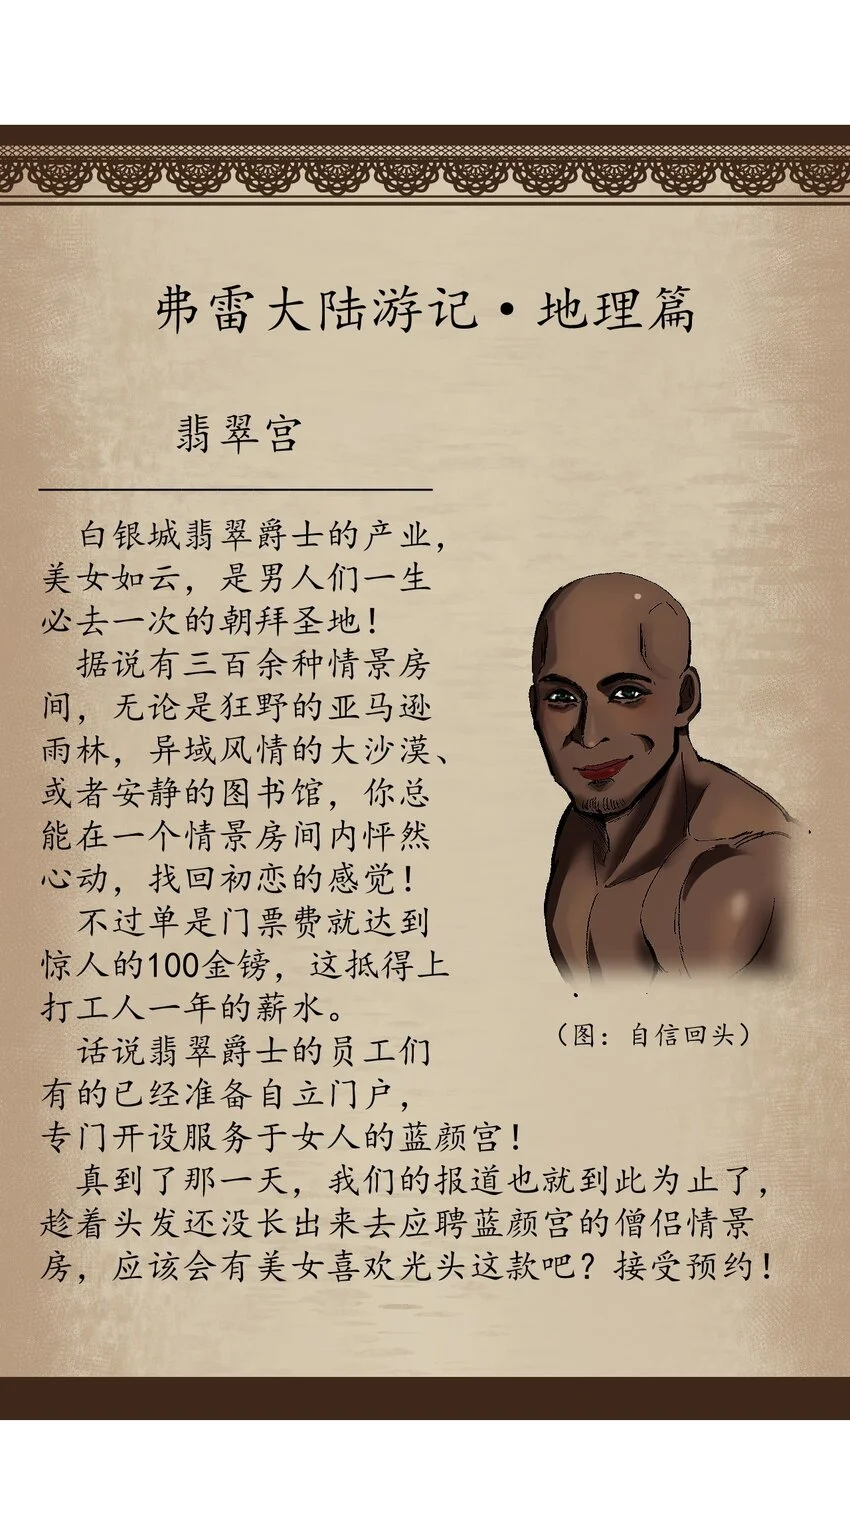 弗雷大陆游记·地理篇
翡翠宫
白银城翡翠爵士的产业，
美女如云，是男人们一生
必去一次的朝拜圣地！
据说有三百余种情景房
间，无论是狂野的亚马逊
雨林，异域风情的大沙漠、
或者安静的图书馆，你总
能在一个情景房间内怦然
心动，找回初恋的感觉！
不过单是门票费就达到
惊人的100金镑，这抵得上
打工人一年的薪水。
话说翡翠爵士的员工们
有的已经准备自立门户，
专门开设服务于女人的蓝颜宫！
真到了那一天，我们的报道也就到此为止了，
趁着头发还没长出来去应聘蓝颜宫的僧侣情景
房，应该会有美女喜欢光头这款吧？接受预约！
（图：自信回头）